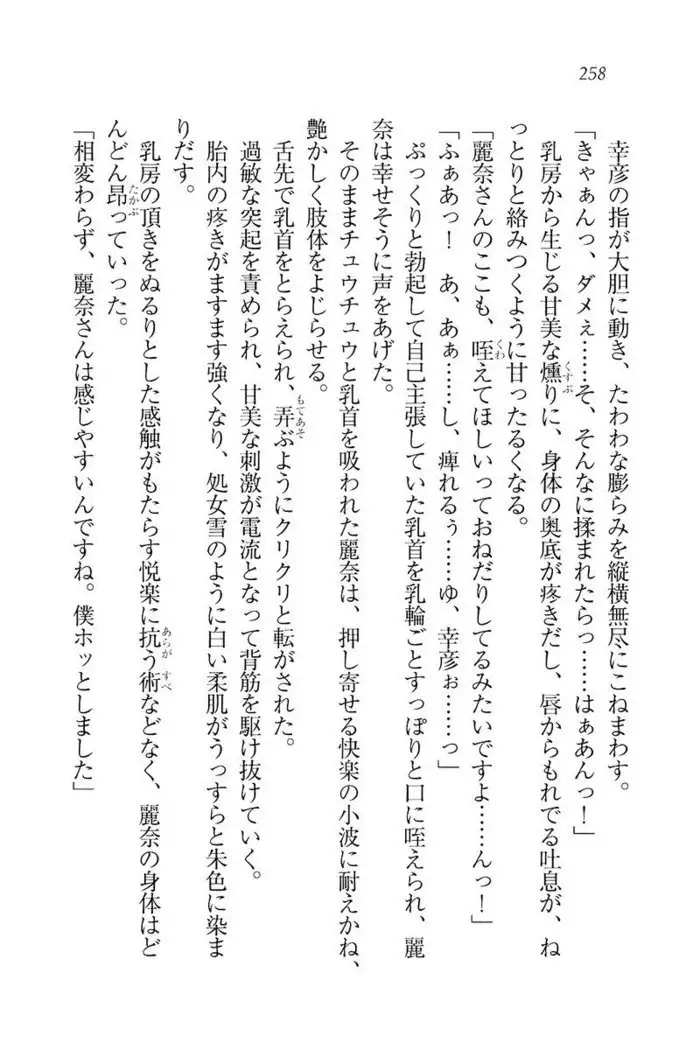 258
幸彦の指が大胆に動き、たわわな膨らみを縦横無尽にこねまわす。
「きゃぁんっ、ダメぇ……そ、そんなに揉まれたらっ……はぁあんっ！」
乳房から生じる甘美な燻りに、身体の奥底が疼きだし、唇からもれでる吐息が、ね
っとりと絡みつくように甘ったるくなる。
「麗奈さんのここも、咥えてほしいっておねだりしてるみたいですよ……んっ！」
「ふぁあっ！　あ、あぁ……し、痺れるぅ……ゆ、幸彦ぉ……っ」
ぷっくりと勃起して自己主張していた乳首を乳輪ごとすっぽりと口に咥えられ、麗
奈は幸せそうに声をあげた。
そのままチュウチュウと乳首を吸われた麗奈は、押し寄せる快楽の小波に耐えかね、
艶かしく肢体をよじらせる。
舌先で乳首をとらえられ、弄ぶようにクリクリと転がされた。
過敏な突起を責められ、甘美な刺激が電流となって背筋を駆け抜けていく。
胎内の疼きがますます強くなり、処女雪のように白い柔肌がうっすらと朱色に染ま
りだす。
乳房の頂きをぬるりとした感触がもたらす悦楽に抗う術などなく、麗奈の身体はど
んどん昂っていった。
「相変わらず、麗奈さんは感じやすいんですね。僕ホッとしました」